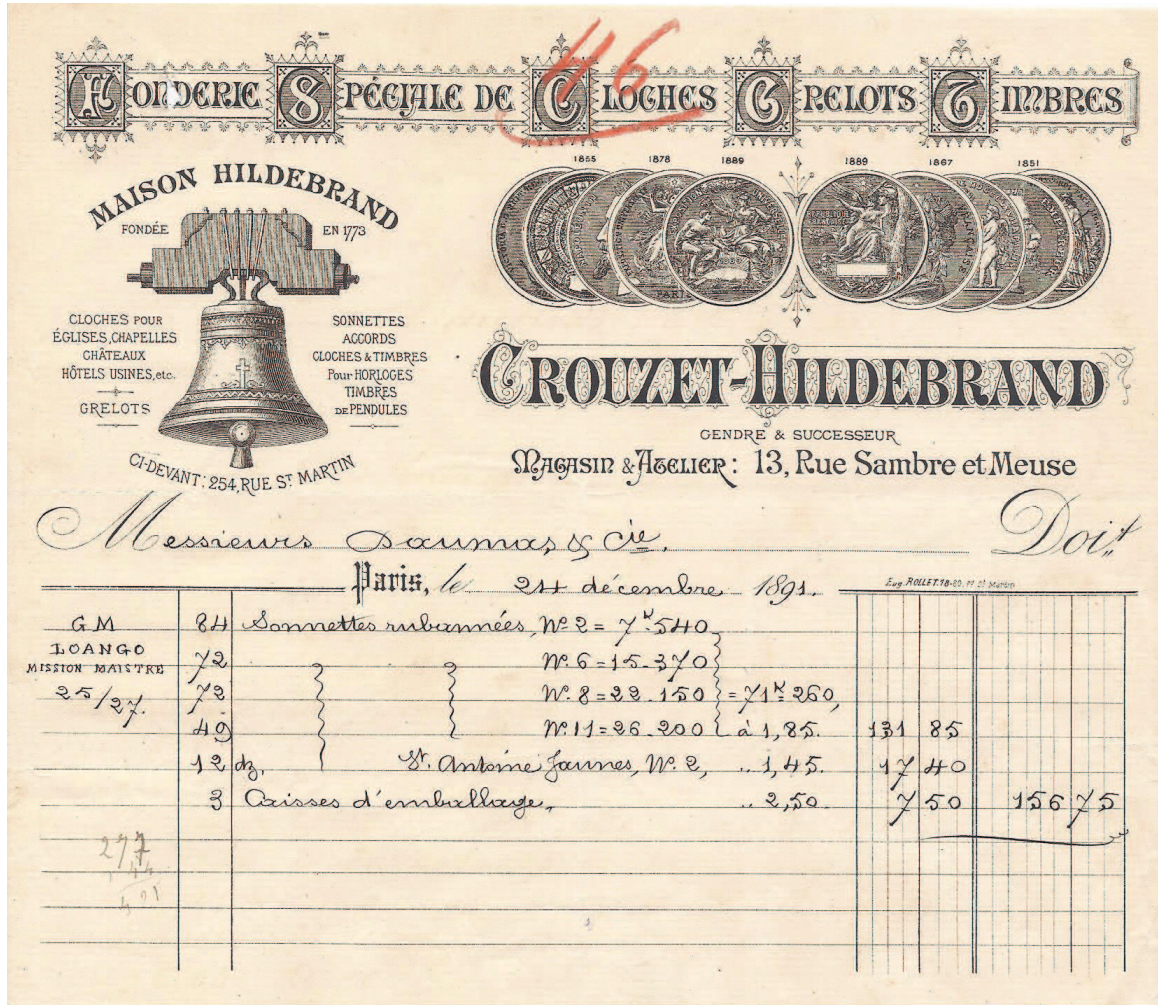 46
FONDERIE SPÉCIALE DE CLOCHES GRELOTS TIMBRES
MAISON HILDEBRAND
FONDÉE EN 1773
CLOCHES POUR
ÉGLISES, CHAPELLES
CHÂTEAUX
HÔTELS USINES, etc.
GRELOTS
SONNETTES
ACCORDS
CLOCHES & TIMBRES
Pour HORLOGES
TIMBRES
DE PENDULES
CI-DEVANT: 254, RUE ST MARTIN
1855 1878 1889 1889 1867 1851
PARIS
CROUZET-HILDEBRAND
GENDRE & SUCCESSEUR
MAGASIN & ATELIER: 13, Rue Sambre et Meuse
Messieurs Daumas & Cie. Doit
Paris, le 24 décembre 1891.
Eug. ROLLET. 78-80. St Martin
GM
LOANGO
MISSION MAISTRE
25/27.
84 Sonnettes rubannées, No 2 = 7k.540
72 No. 6 = 15.370
72 No. 8 = 22.150 = 71k.260,
49 No. 11 = 26.200 à 1,85. 131 85
12 dz. St. Antoine jaunes, No. 2, .. 1,45. 17 40
3 Caisses d'emballage, .. 2,50. 7 50 156 75
277